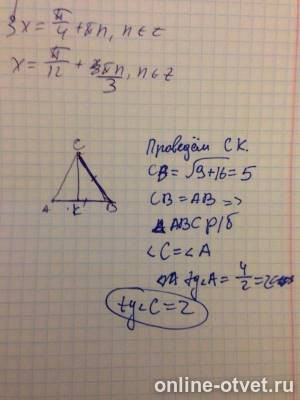 3x = π/4 + πn, n∈z
x = π/12 + πn/3, n∈z
C
A K B
Проведём СК.
CB = √9+16 = 5
CB = AB =>
ΔABC р/б
<C = <A
tg<A = 4/2 = 2
tg<C = 2
online-otvet.ru